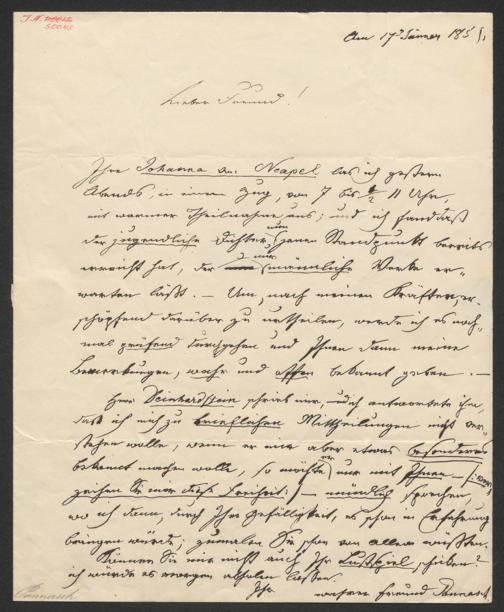 J.N. 
50045
Am 17t Jänner 185
Lieber Freund!
Ihre Johanna von Neapel las ich gestern
Abends, in einem Zug, von 7 bis ½ 11 Uhr,
mit warmer Theilnahme aus; und ich fand daß
der jugendliche Dichter nun jenen Standpunkt bereits
erreicht hat, der nur männliche Werke er-
warten läßt. — Um, nach meinen Kräften, er-
schöpfend darüber zu urtheilen, werde ich es noch-
mal prüfend durchgehen und Ihnen dann meine
Bemerkungen, wahr und offen bekannt geben. —
Herr Deinhardstein schrieb mir, und ich antwortete ihm,
daß ich mich zu brieflichen Mittheilungen nicht ver-
stehen wolle, wenn er mir aber etwas besonderes
bekannt machen wolle, so möchte er nur mit Ihnen — (: ver-
zeihen Sie mir diese Freiheit :) — mündlich sprechen,
wo ich dann, durch Ihre Gefälligkeit, es schon in Erfahrung
bringen würde; zumalen Sie schon von allem wüßten.
Können Sie mir nicht auch Ihr Lustspiel, schicken?
ich würde es morgen abholen lassen.
Ihr wahrer Freund Pannasch
Pannasch